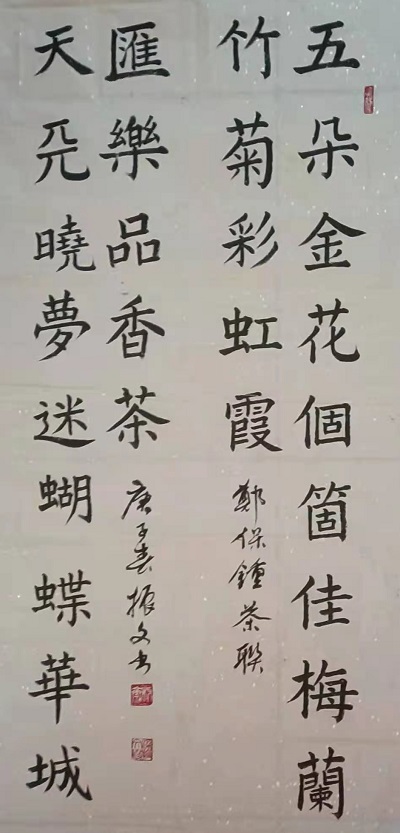 五朵金花個箇佳梅蘭
竹菊彩虹霞
鄭保鍾茶聯
天曉夢迷蝴蝶華城
匯樂品香茶
庚子春振文书